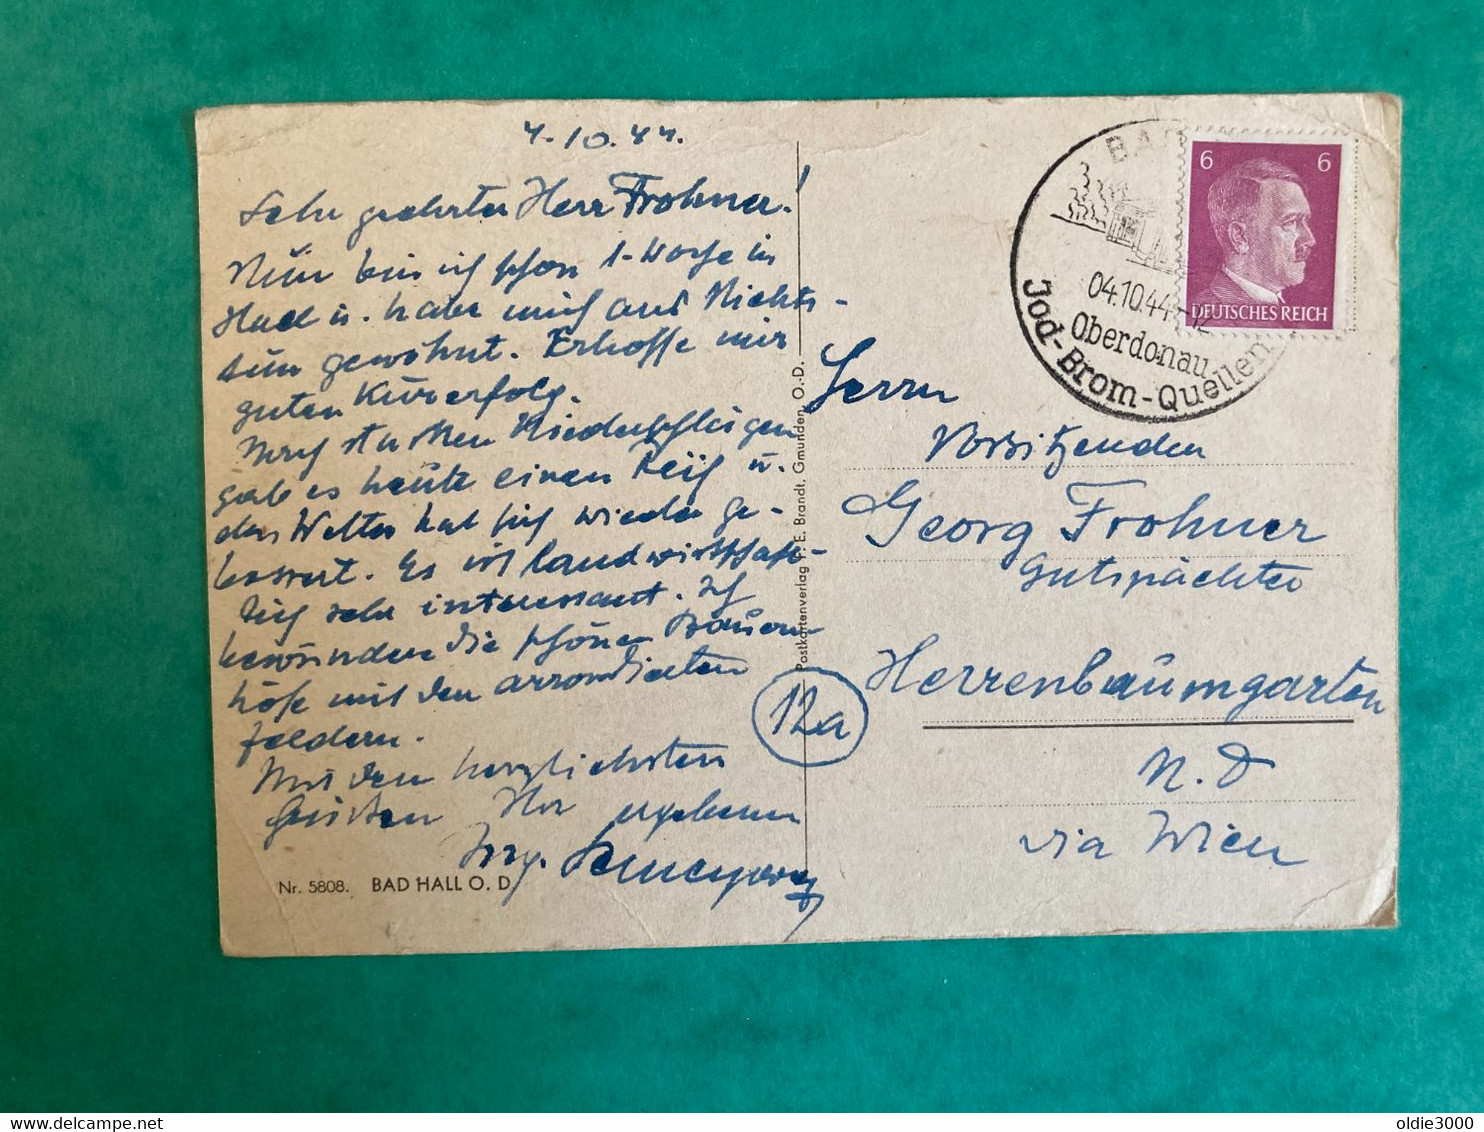 4.10.44.
Sehr geehrter Herr Frohner!
Nun bin ich schon 1-Woche in
Hall u. habe mich ans Nichts-
tun gewöhnt. Erhoffe mir
guten Kurerfolg.
Nach starken Niederschlägen
gab es heute einen Reif u.
das Wetter hat sich wieder ge-
bessert. Es ist landwirtschaft-
lich sehr interessant. Ich
bewundere die schönen Bauern-
höfe mit den arrondierten
Feldern.
Mit den herzlichsten
Grüssen Ihr ergebener
Ing.
Nr. 5808. BAD HALL O. D.
Postkartenverlag F. E. Brandt, Gmunden, O.-D.
12a
BAD
04.10.44-12
Oberdonau
Jod-Brom-Quellen
6 6
DEUTSCHES REICH
Herrn
Vorsitzenden
Georg Frohner
Gutspächter
Herrenbaumgarten
N. D
via Wien
oldie3000